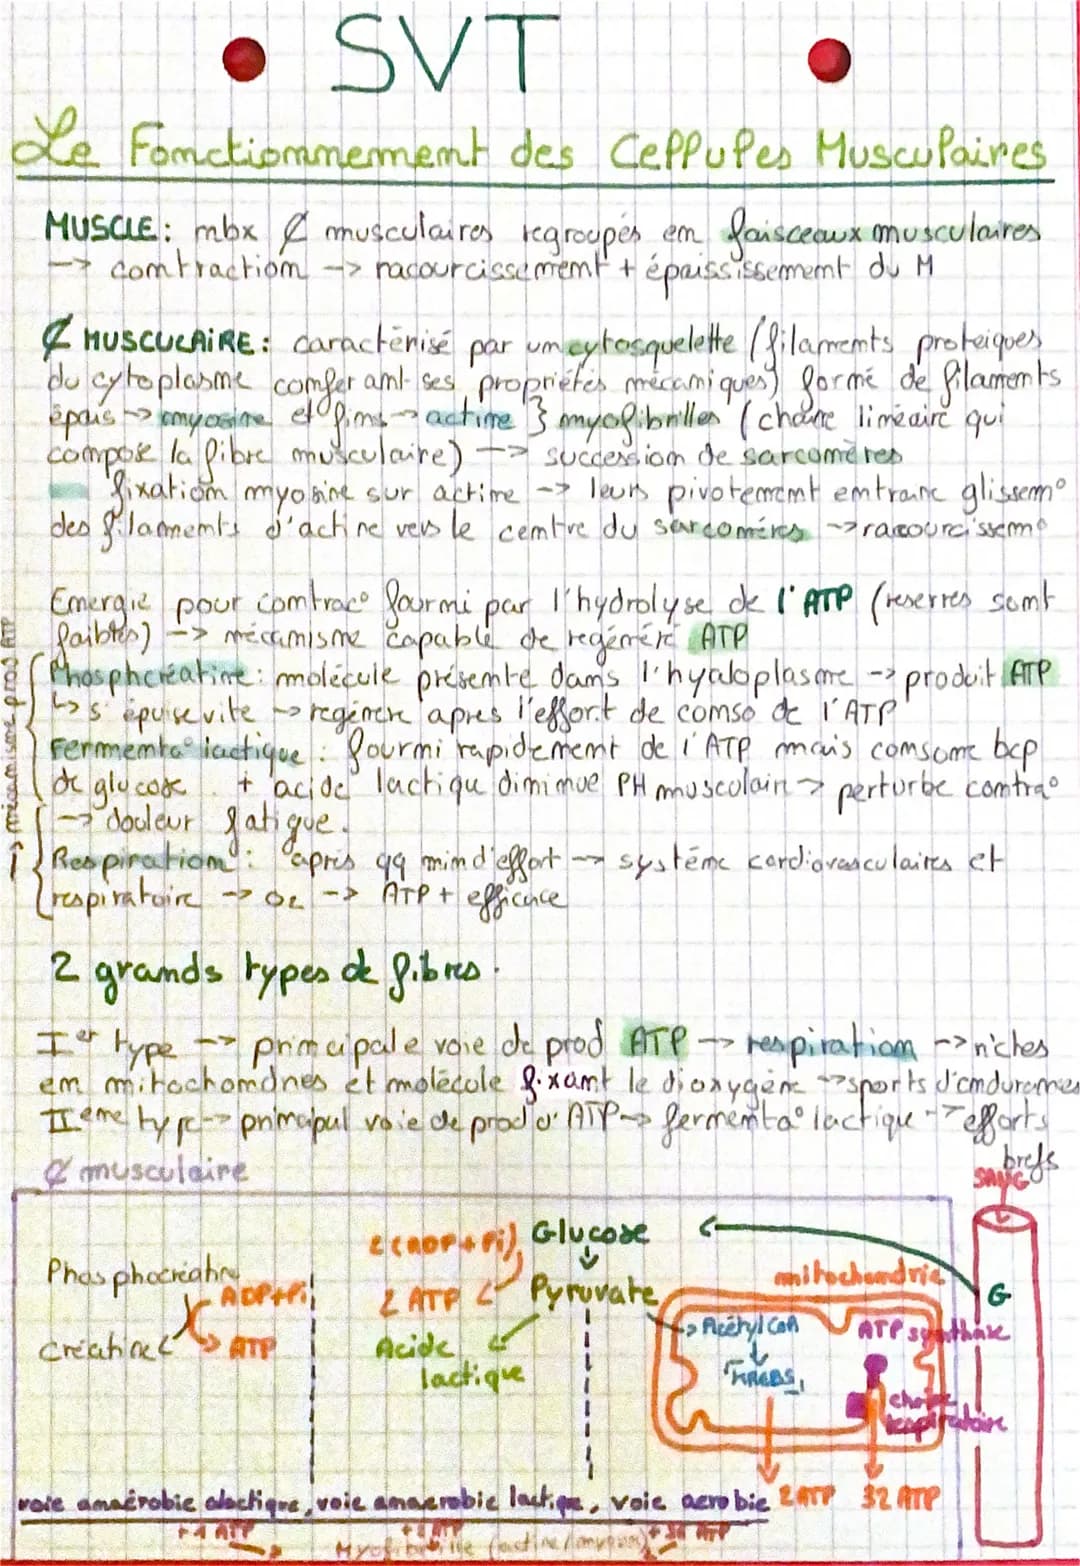 SVT
Le Fonctionnement des Cellules Musculaires
MUSCLE: nbx ₵ musculaires regroupés en faisceaux musculaires
--> contraction --> racourcissement + épaississement du M
₵ MUSCULAIRE: caractérisé par un cytosquelette (filaments proteiques
du cytoplasme conferant ses propriétés mécaniques) formé de filaments
épais -> myosine et fins -> actine } myofibrilles (chaîne linéaire qui
compose la fibre musculaire) --> succession de sarcomères
fixation myosine sur actine -> leurs pivotement entraine glissem°
des filaments d'actine vers le centre du sarcomères -> racourcissem°
Energie pour contrac° fourni par l'hydrolyse de l'ATP (reserves sont
faibles) --> mécanisme capable de regénéré ATP
-> mécanisme prod ATP
Phosphcréatine: molécule présente dans l'hyaloplasme -> produit ATP
↳ s'épuise vite -> regénère apres l'effort de conso de l'ATP
Fermenta° lactique: fourni rapidement de l'ATP mais consome bcp
de glucose. + acide lactique diminue PH musculain -> perturbe contra°
--> douleur fatigue.
Respiration: après qq min d'effort -> système cardiovasculaires et
respiratoire -> O2 --> ATP + efficace
2 grands types de fibres.
Ier type --> principale voie de prod ATP --> respiration -> riches
en mitochondries et molécule fixant le dioxygène -> sports d'endurances
IIeme type -> principal voie de prod d'ATP -> fermenta° lactique -> efforts
brefs
₵ musculaire
SANG
2(ADP+Pi)
Glucose
Phosphocréatine
ADP+Pi
2 ATP
Pyruvate
mitochondrie
G
Créatine
ATP
Acide
lactique
Acétyl CoA
KREBS
ATP synthase
chaîne
respiratoire
voie anaérobie alactique, voie anaerobie lactique, voie aerobie
2 ATP
32 ATP
+1 ATP
Myofibrille (actine/myosine)